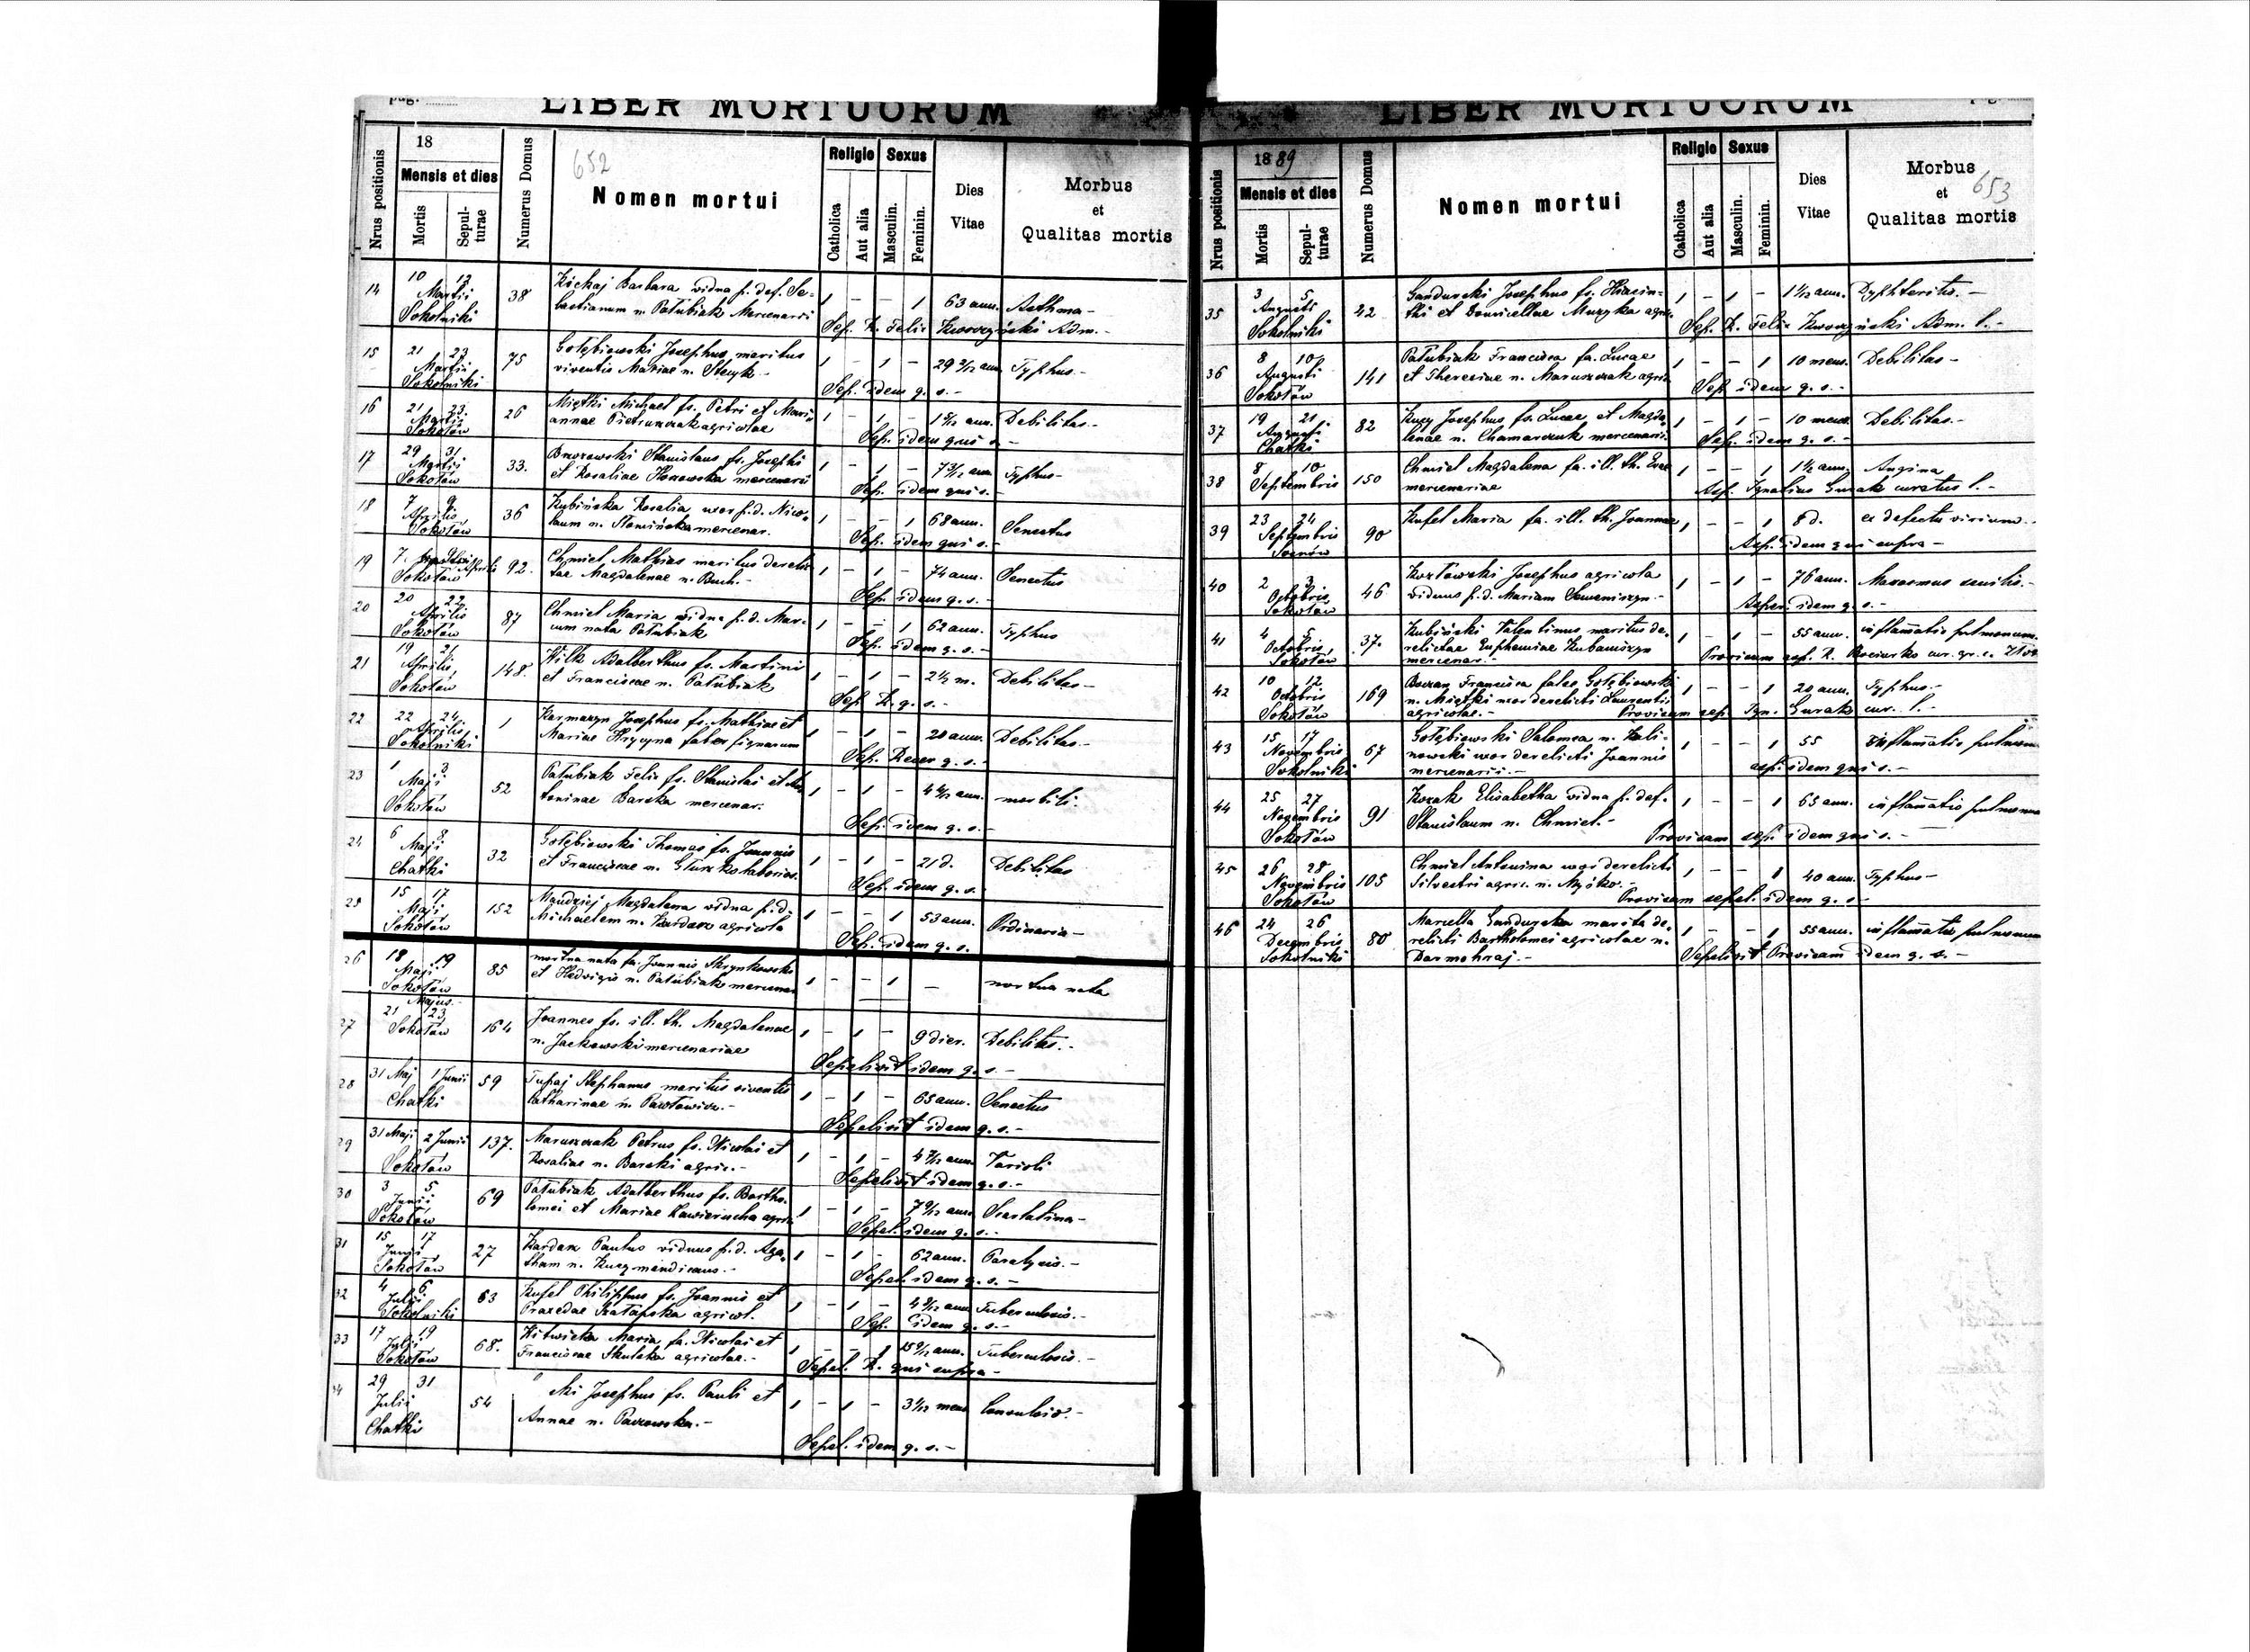 pag.
LIBER MORTUORUM
652
Nrus positionis
18
Mensis et dies
Mortis
Sepulturae
Numerus Domus
Nomen mortui
Religio
Catholica
Aut alia
Sexus
Masculin.
Feminin.
Dies Vitae
Morbus
et
Qualitas mortis
14 10 12 Martii Sokolniki 38 Barbara vidua p. def. Se-
bastianum n. Patubiak Mercenarii 1 - - 1 63 ann. Asthma -
Sep. X. Felix Adm. -
15 21 23 Martii Sokolniki 75 Gołębiowski Josephus maritus
viventis Mariae n. 1 - 1 - 29 2/12 ann. Typhus -
Sep. idem q. s. -
16 21 23. Martii Sokołów 26 Miętki Michael fs. Petri et Mari-
annae agricolae 1 - 1 - ann. Debilitas -
Sep. idem qui s. -
17 29 31 Martii Sokołów 33. Brzozowski Stanislaus fs. Josephi
et Rosaliae mercenarii 1 - 1 - 7 ann. Typhus -
Sep. idem qui s. -
18 7 9 Aprilis Sokołów 36 Kubińska Rosalia, uxor p. d. Nico-
laum n. Słowińska mercenar. 1 - - 1 68 ann. Senectus
Sep. idem qui s. -
19 7. 9 Aprilis Sokołów 92. Chmiel Mathias maritus derelic-
tae Magdalenae n. 1 - 1 - 74 ann. Senectus
Sep. idem q. s. -
20 20 22 Aprilis Sokołów 87 Chmiel Maria vidua p. d. Mar-
cum nata Patubiak 1 - - 1 62 ann. Typhus
Sep. idem q. s. -
21 19 21 Aprilis Sokołów 148. Wilk Adalberthus fs. Martini
et Franciscae n. Patubiak 1 - 1 - 2 1/2 m. Debilitas -
Sep. X. q. s. -
22 22 24 Aprilis Sokolniki 1 Karmazyn Josephus fs. Mathiae et
Mariae faber lignarum 1 - 1 - 20 ann. Debilitas -
Sep. q. s. -
23 1 3 Maji Sokołów 52 Patubiak Felix fs. Stanislai et An-
toninae Barska mercenar. 1 - 1 - 4 ann. morbili.
Sep. idem q. s. -
24 6 8 Maji Chatki 32 Gołębiowski Thomas fs. Joannis
et Franciscae n. 1 - 1 - 21 d. Debilitas
Sep. idem q. s. -
25 15 17 Maji Sokołów 152 Magdalena vidua p. d.
Michaelem n. Kardasz agricola 1 - - 1 53 ann. Ordinaria -
Sep. idem q. s.
26 18 19 Maji Sokołów 85 mortua nata fa. Joannis
et Hedvigis n. Patubiak 1 - - 1 - mortua nata
27 21 23 Majus Sokołów 164 Joannes fs. ill. th. Magdalenae
n. Jackowski mercenariae 1 - 1 - 9 dier. Debilitas. -
Sepelivit idem q. s. -
28 31 Maj 1 Junii Chatki 59 Tupaj Stephanus maritus viventis
Catharinae n. 1 - 1 - 65 ann. Senectus
Sepelivit idem q. s. -
29 31 Maji 2 Junii Sokołów 137. Maruszczak Petrus fs. Nicolai et
Rosaliae n. Barski agric. - 1 - 1 - 4 ann. Varioli
Sepelivit idem q. s. -
30 3 5 Junii Sokołów 69 Patubiak Adalberthus fs. Bartho-
lomei et Mariae Kawierucha agric. 1 - 1 - 7 ann. Scarlatina -
Sepel. idem q. s. -
31 15 17 Junii Sokołów 27 Kardasz Paulus viduus p. d. Aga-
tham n. Kuzy mendicans. - 1 - 1 - 62 ann. Paralysis. -
Sepel. idem q. s. -
32 4 6 Julii Sokolniki 63 Kufel Philippus fs. Joannis et
Praxedae agricol. 1 - 1 - 4 ann. Tuberculosis. -
Sep. idem q. s. -
33 17 19 Julii Sokołów 68. Maria fa. Nicolai et
Franciscae Skulska agricolae. - 1 - - 1 15 ann. Tuberculosis. -
Sepel. X. qui supra -
34 29 31 Julii Chatki 54 Josephus fs. Pauli et
Annae n. 1 - 1 - 3 mens.
Sepel. idem q. s. -
LIBER MORTUORUM
Nrus positionis
1889
Mensis et dies
Mortis
Sepulturae
Numerus Domus
Nomen mortui
Religio
Catholica
Aut alia
Sexus
Masculin.
Feminin.
Dies Vitae
Morbus
et
Qualitas mortis
653
35 3 5 Augusti Sokolniki 42 Gandurski Josephus fs. Hiacin-
thi et Muzyka agric. 1 - 1 - 1 1/12 ann. Dyphteritis. -
Sep. X. Felix Adm. l. -
36 8 10 Augusti Sokołów 141 Patubiak Francisca fa. Lucae
et Theresiae n. Maruszczak agric. 1 - - 1 10 mens. Debilitas -
Sep. idem q. s. -
37 19 21 Augusti Chatki 82 Kuzy Josephus fs. Lucae et Magda-
lenae n. mercenarii. 1 - 1 - 10 mens. Debilitas. -
Sep. idem q. s. -
38 8 10 Septembris 150 Chmiel Magdalena fa. ill. th. Evae
mercenariae 1 - - 1 1 1/2 ann. Angina
Sep. Ignatius Gurak curatus l. -
39 23 24 Septembris 90 Kufel Maria fa. ill. th. Joannae 1 - - 1 8 d. ex defectu virium. -
Sep. idem qui supra -
40 2 3 Octobris Sokołów 46 Kozłowski Josephus agricola
viduus p. d. Mariam 1 - 1 - 76 ann. Marasmus senilis. -
idem q. s. -
41 4 5 Octobris Sokołów 37. Kubiński Valentinus maritus de-
relictae Euphemiae
mercenar. - 1 - 1 - 55 ann. inflamatio pulmonum.
Provisum sep.
42 10 12 Octobris Sokołów 169 Francisca Gołębiowski
n. Miętki uxor derelicti Laurentii
agricolae. - 1 - - 1 20 ann. Typhus -
Provisam sep. Ign. Gurak cur. l. -
43 15 17 Novembris Sokolniki 67 Gołębiowski Salomea n. Kali-
nowski uxor derelicti Joannis
mercenarii. - 1 - - 1 55 inflamatio pulmonum
sep. idem qui s. -
44 25 27 Novembris Sokołów 91 Kozak Elisabetha vidua p. def.
Stanislaum n. Chmiel. - 1 - - 1 65 ann. inflamatio pulmonum
Provisam sep. idem qui s. -
45 26 28 Novembris Sokołów 105 Chmiel Antonina uxor derelicti
Silvestri agric. n. 1 - - 1 40 ann. Typhus -
Provisam sepel. idem q. s. -
46 24 26 Decembris Sokolniki 80 Marcella Gandurska marita de-
relicti Bartholomei agricolae n.
Darmohraj. - 1 - - 1 55 ann. inflamatio pulmonum
Sepelivit Provisam idem q. s. -